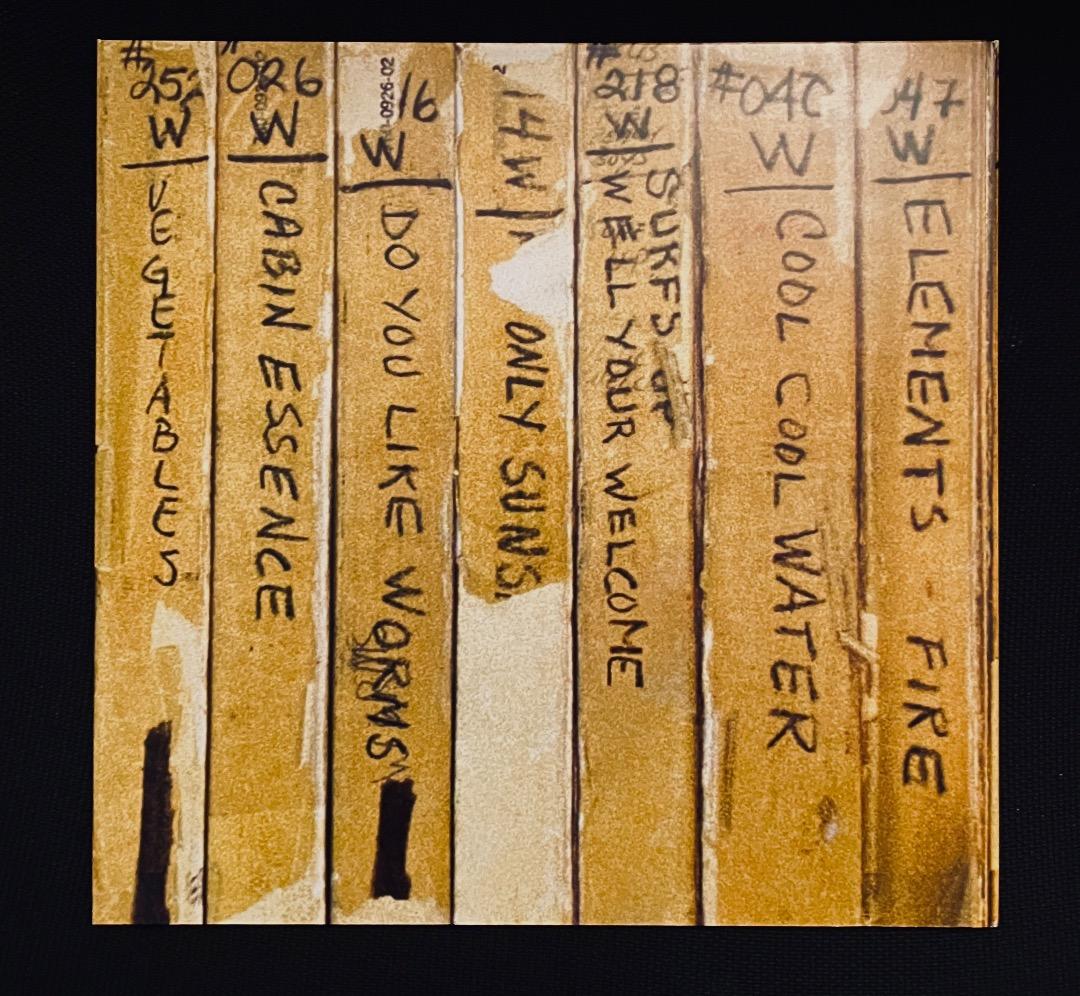 #252
W
VEGETABLES
026
W
CABIN ESSENCE
0-0926-02
16
W
DO YOU LIKE WORMS
2
14W
ONLY SUNS
#218
W
SURFS UP
WELL YOUR WELCOME
#04C
W
COOL COOL WATER
47
W
ELEMENTS - FIRE